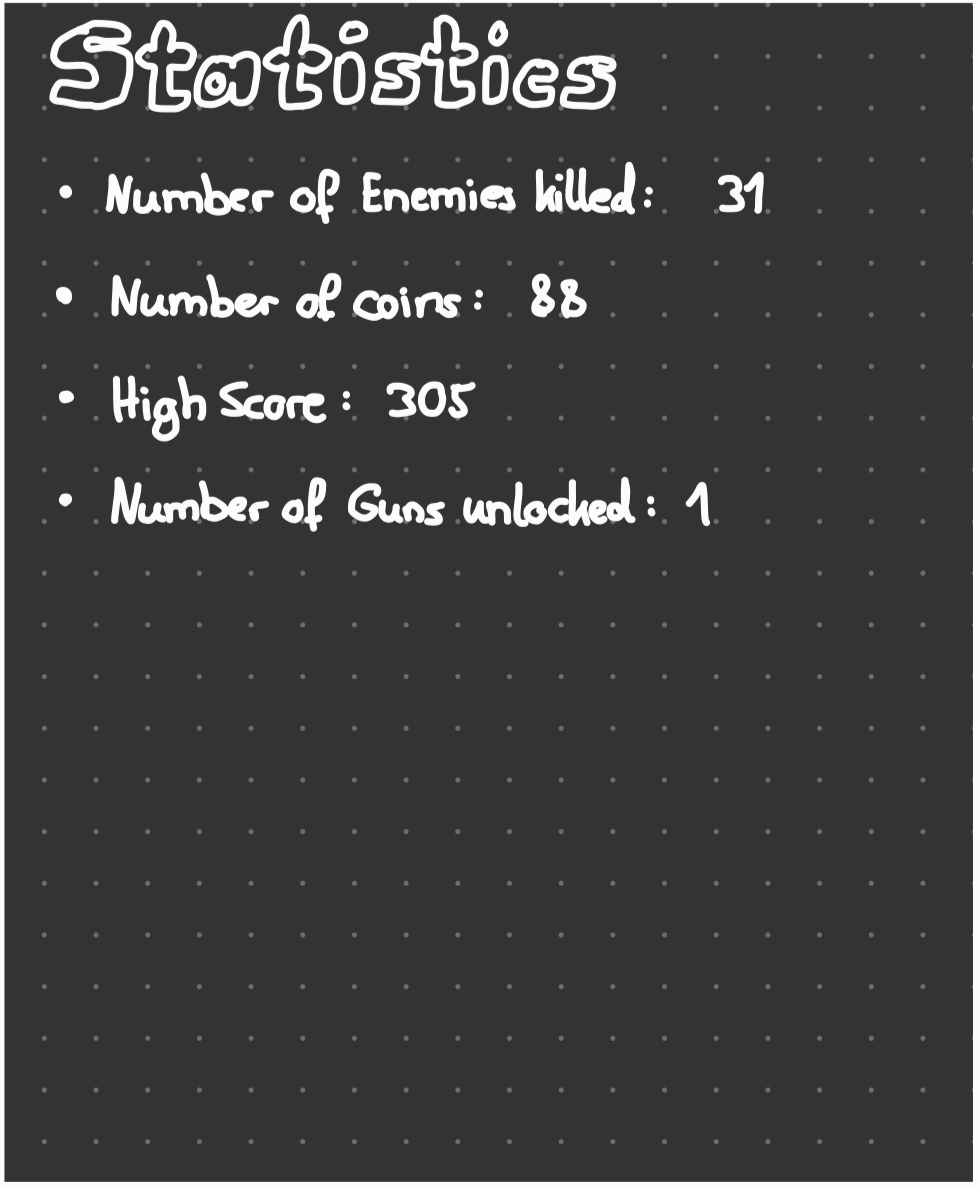 Statistics
• Number of Enemies killed: 31
• Number of coins: 88
• High Score: 305
• Number of Guns unlocked: 1